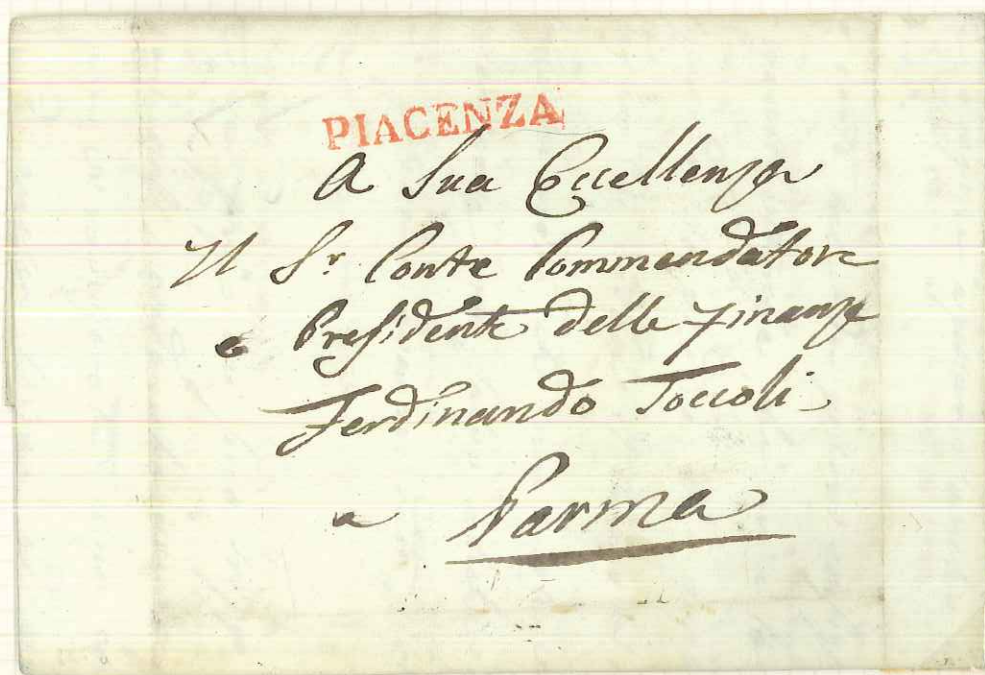 PIACENZA
A Sua Eccellenza
Il Sr. Conte Commendatore
e Presidente delle Finanze
Ferdinando Toccoli
a Parma